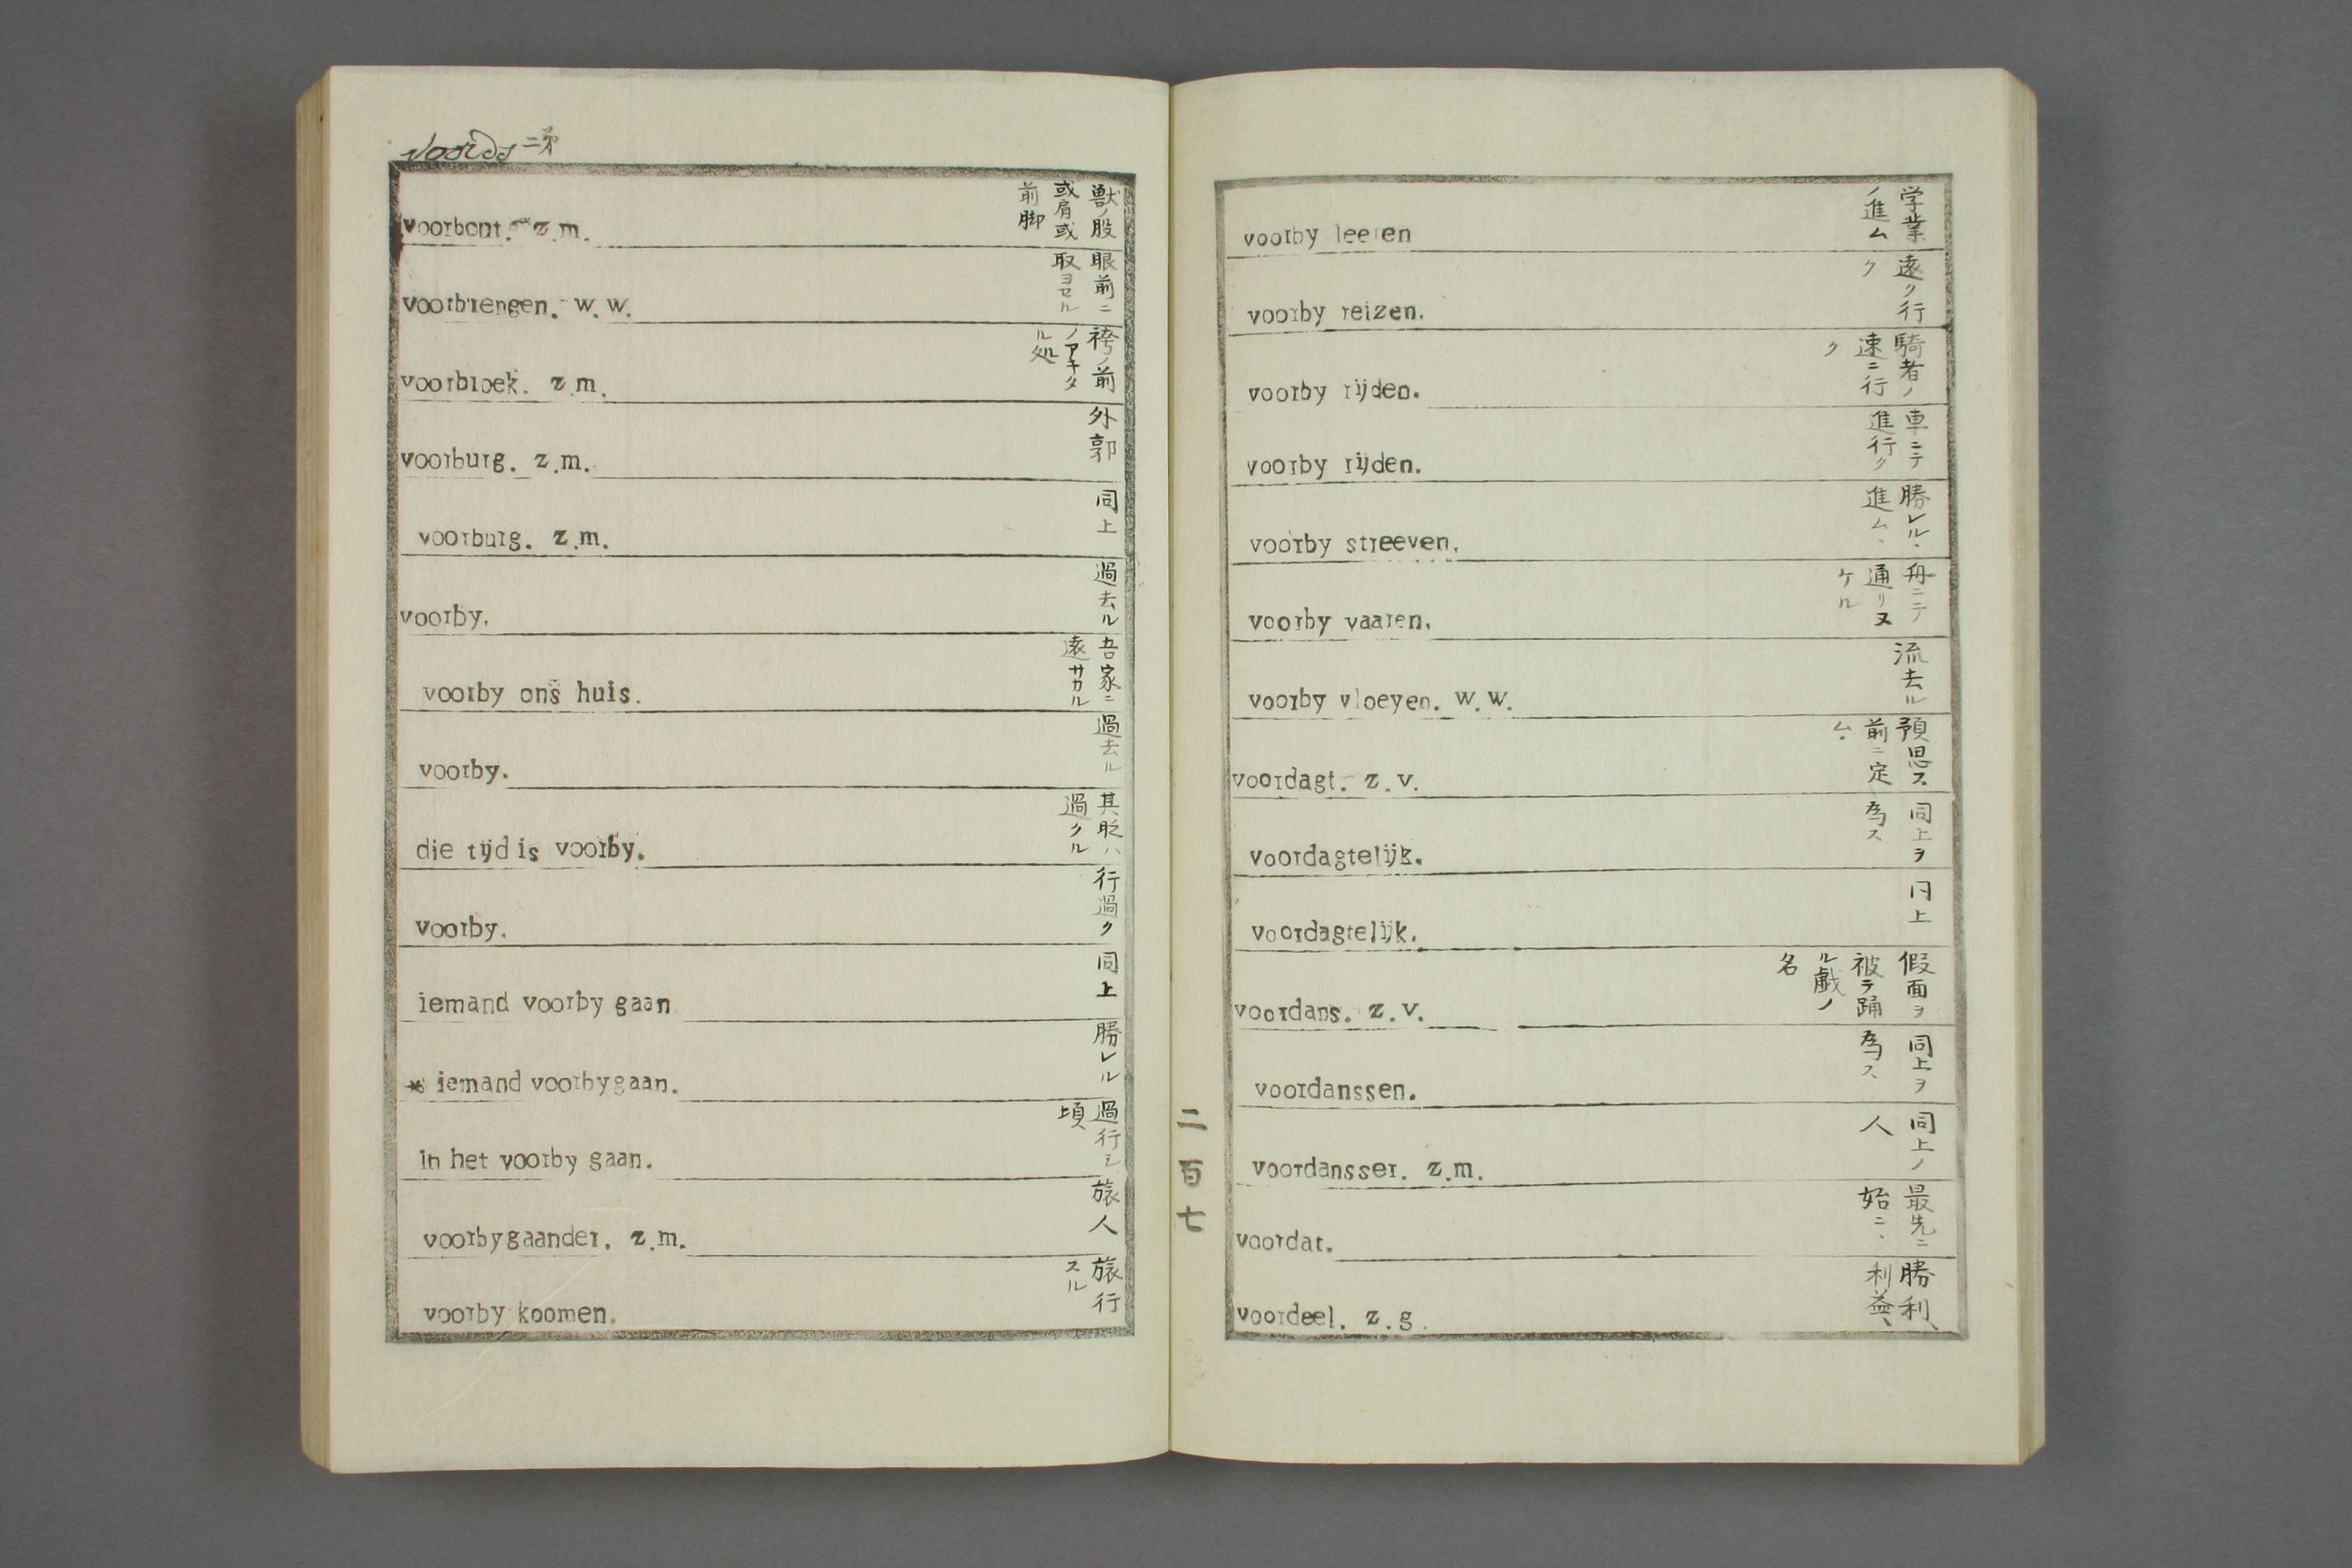 voorbont. z.m.
獸ノ股
或肩或
前脚
voorbrengen. w.w.
眼前ニ
取ヨセル
voorbroek. z.m.
袴ノ前
ノアキタ
ル処
voorburg. z.m.
外郭
voorburg. z.m.
同上
voorby.
過去ル
voorby ons huis.
吾家ニ
遠サカル
voorby.
過去ル
die tijd is voorby.
其时ハ
過クル
voorby.
行過ク
iemand voorby gaan
同上
* iemand voorbygaan.
勝レル
in het voorby gaan.
過行シ
頃
voorbygaander. z.m.
旅人
voorby koomen.
旅行
スル
二百七
voorby leeren
学業
ノ進ム
voorby reizen.
遠ク行
ク
voorby rijden.
騎者ノ
速ニ行
ク
voorby rijden.
車ニテ
進行ク
voorby streeven.
勝レル、
進ム、
voorby vaaren.
舟ニテ
通リヌ
ケル
voorby vloeyen. w.w.
流去ル
voordagt. z.v.
預思ス
前ニ定
ム、
voordagtelijk.
同上ヲ
為ス
voordagtelijk.
同上
voordans. z.v.
假面ヲ
被テ踊
ル戯ノ
名
voordanssen.
同上ヲ
為ス
voordansser. z.m.
同上ノ
人
voordat.
最先ニ
始ニ、
voordeel. z.g.
勝利、
利益、